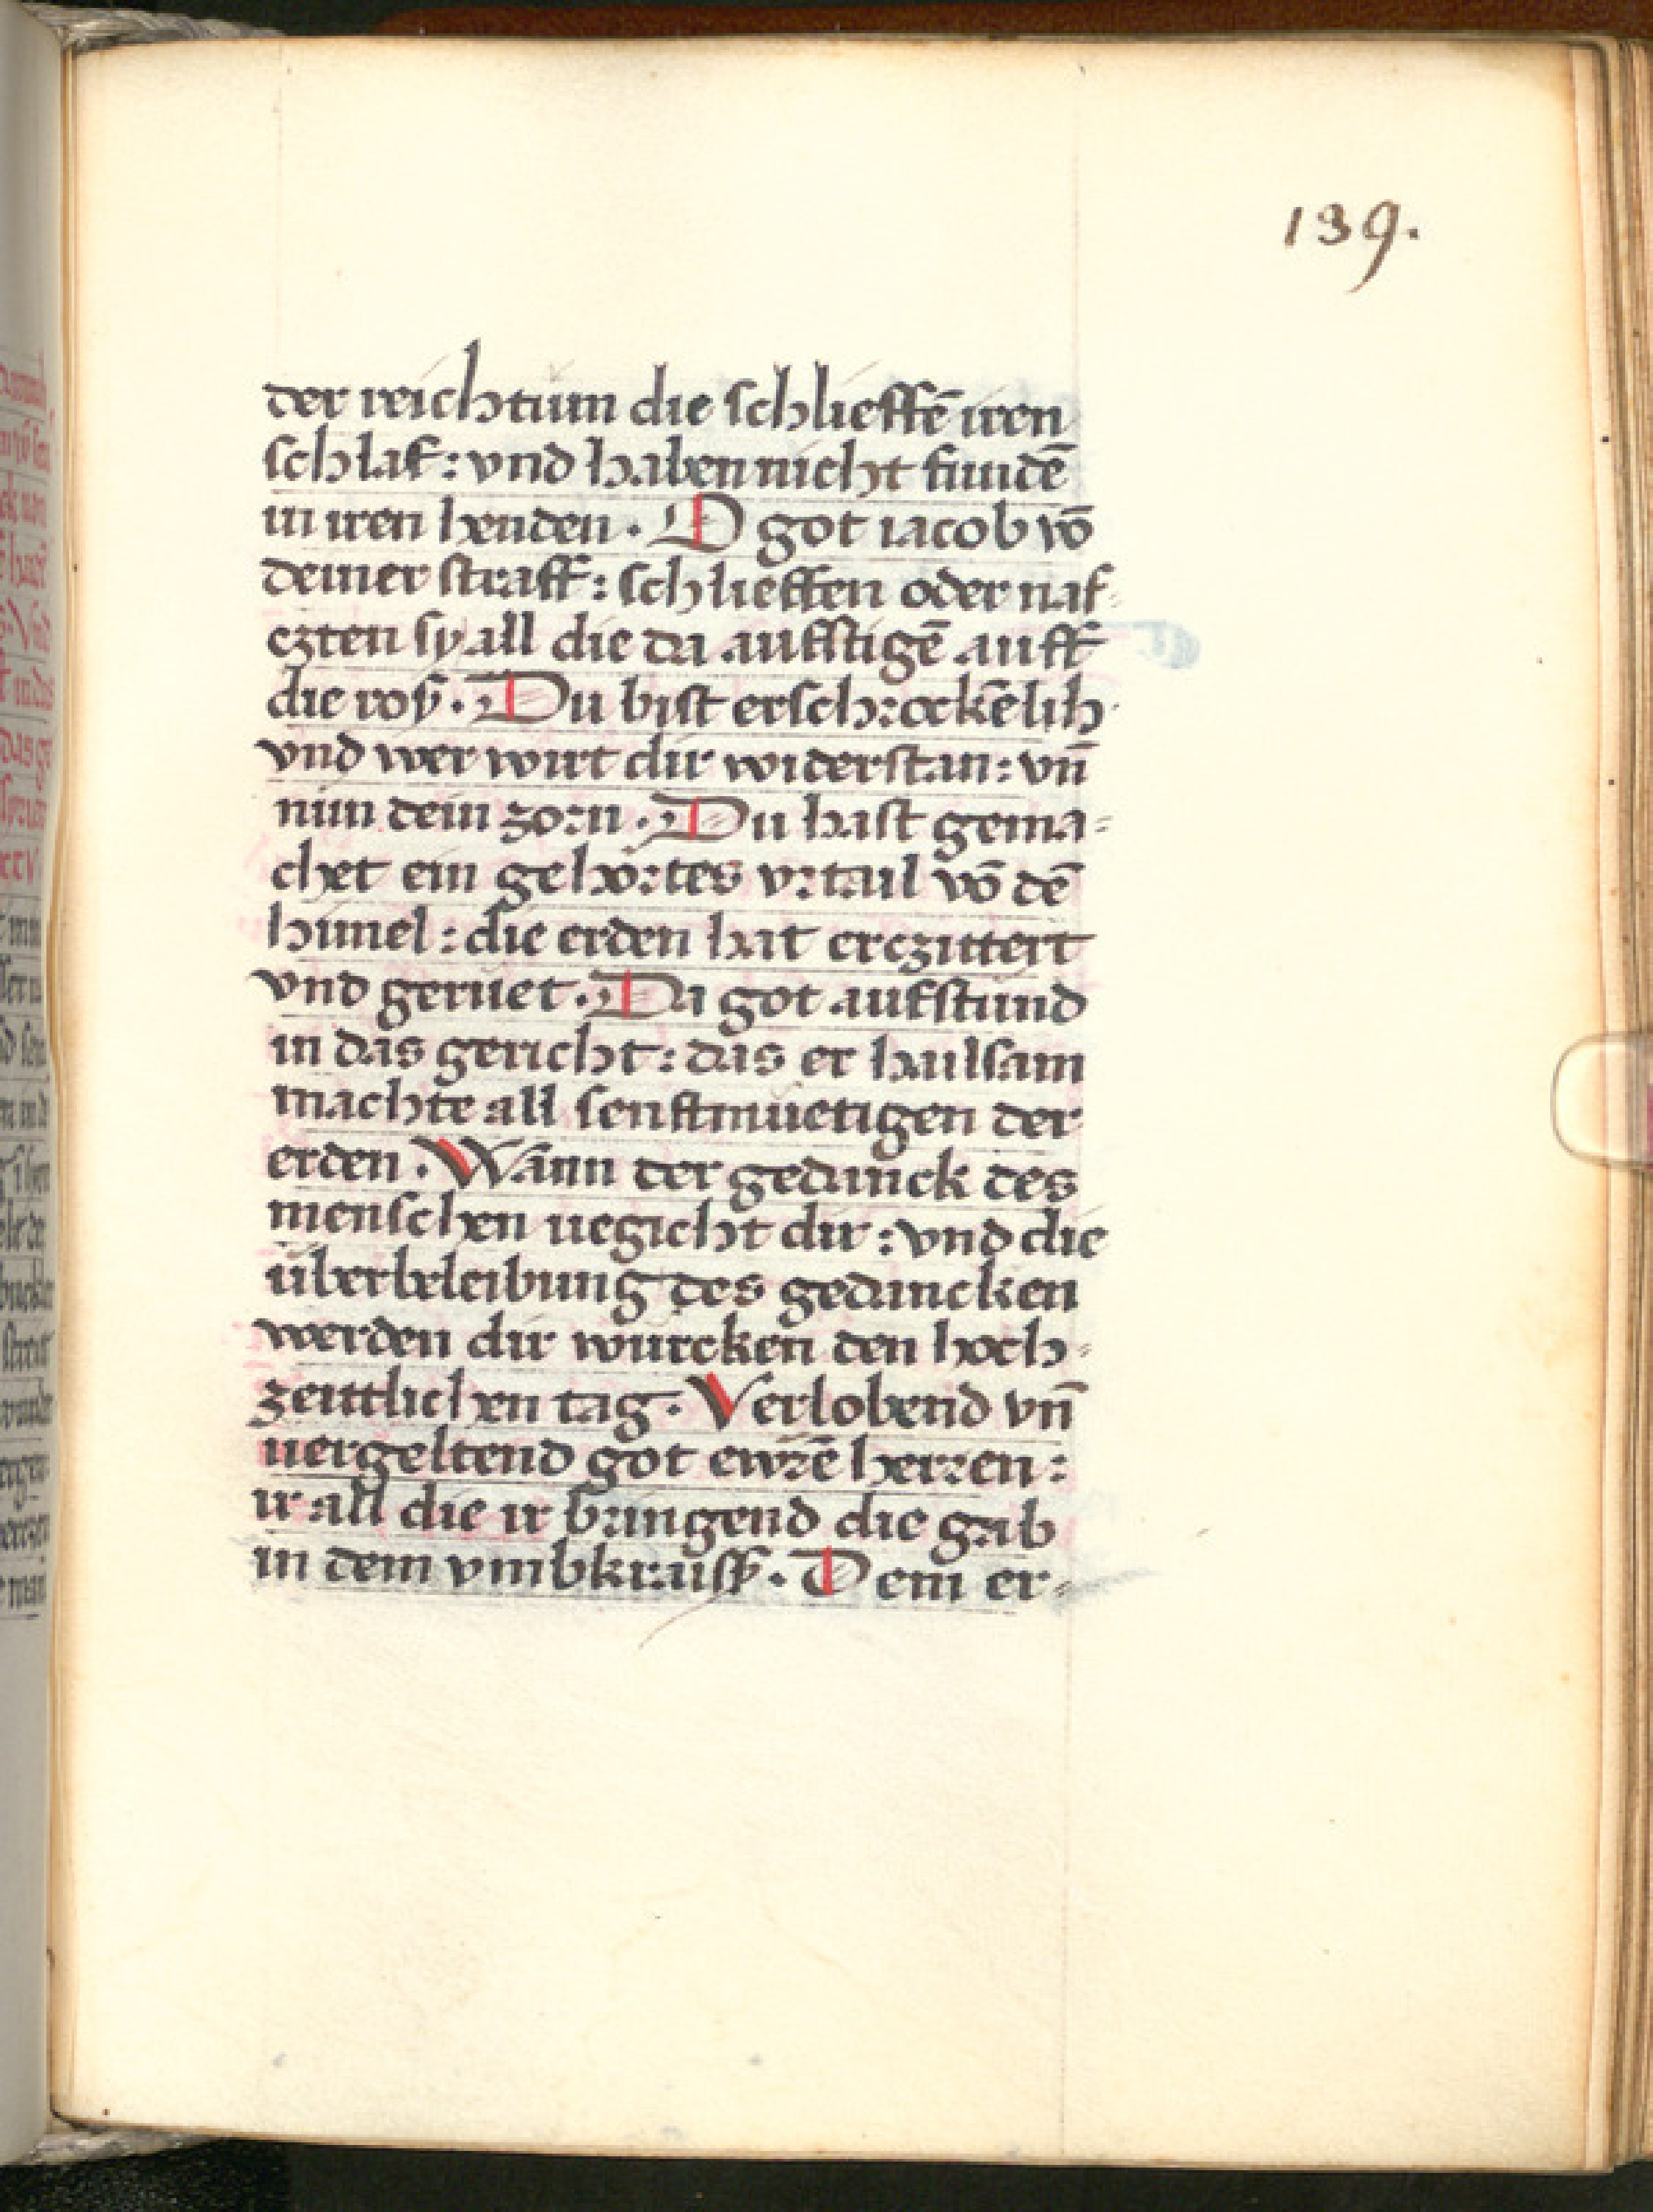 139.
der reichtum die schlieffē iren
schlaf : vnd haben nicht fundē
in iren henden . O got iacob vō
deiner straff : schlieffen oder naf⸗
czten sy all die da aufstigē auff
die roß . Du bist erschrockēlih
vnd wer wirt dir widerstan : vn̄
nim dein zorn . Du hast gema⸗
chet ein gehörtes vrtail vō dē
himel : die erden hat erczittert
vnd geruet . Da got aufstund
in das gericht : das er hailsam
machte all senftmuetigen der
erden . Wann der gedanck des
menschen uegicht dir : vnd die
überbeleibung des gedancken
werden dir würcken den hoch⸗
zeittlichen tag . Verlobend vn̄
uergeltend got ewrē herren :
ir all die ir bringend die gab
in dem vmbkraiß . Dem er⸗